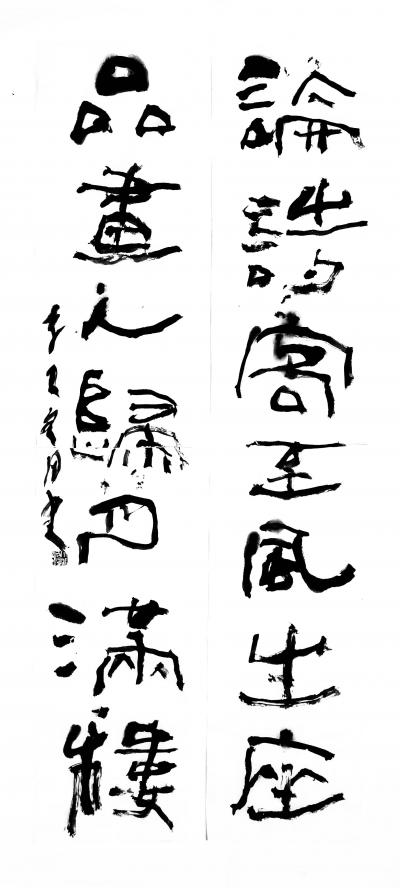 論詩客至風生座
品畫人歸月滿樓